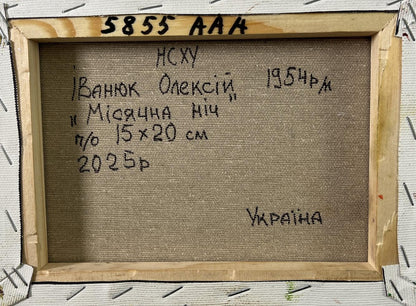 5855 AAA
НСХУ
Іванюк Олексій 1954р/н
„Місячна ніч"
п/о 15х20 см
2025р
Україна